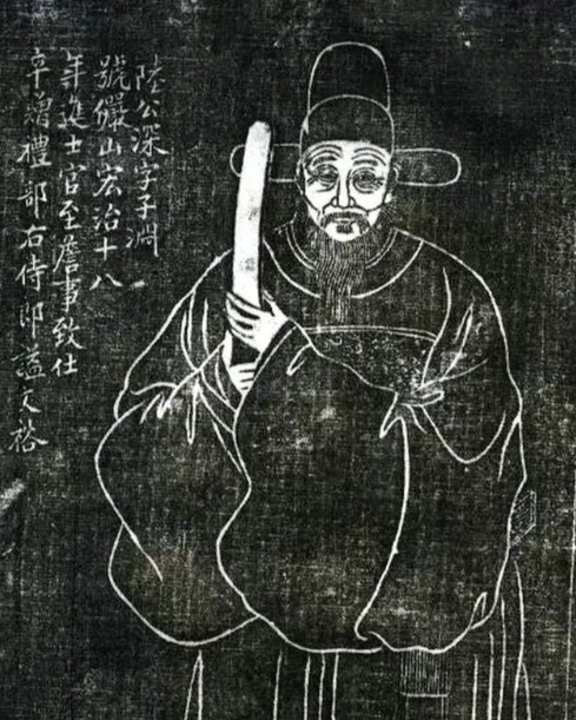 陸公深字子淵
號儼山宏治十八
年進士官至詹事致仕
卒贈禮部右侍郎諡文裕